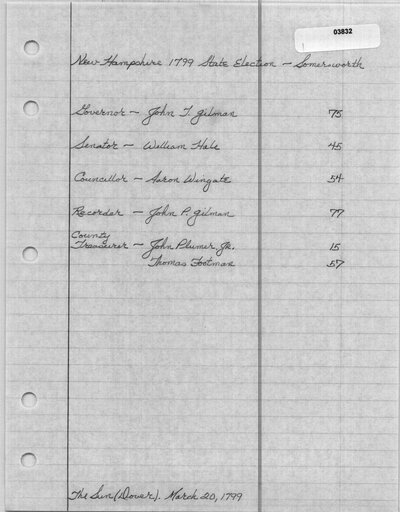 03832
New Hampshire 1799 State Election — Somersworth
Governor — John T. Gilman 75
Senator — William Hale 45
Councillor — Aaron Wingate 54
Recorder — John P. Gilman 77
County
Treasurer — John Plumer Jr. 15
Thomas Footman 57
The Sun (Dover). March 20, 1799